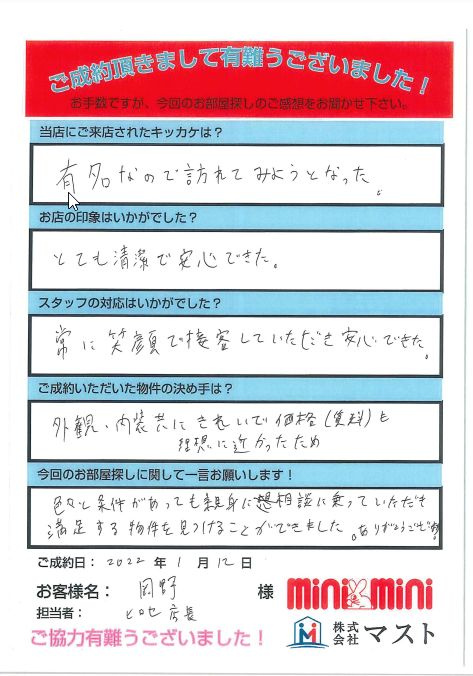 ご成約頂きまして有難うございました！
お手数ですが、今回のお部屋探しのご感想をお聞かせ下さい。
当店にご来店されたキッカケは？
有名なので訪れてみようとなった。
お店の印象はいかがでした？
とても清潔で安心できた。
スタッフの対応はいかがでした？
常に笑顔で接客していただき安心できた。
ご成約いただいた物件の決め手は？
外観、内装共にきれいで価格(賃料)も
理想に近かったため
今回のお部屋探しに関して一言お願いします！
色々と条件があっても親身に相談に乗っていただき
満足する物件を見つけることができました。ありがとうござ
ご成約日： 2022 年 1 月 12 日
お客様名： 岡野 様
担当者： 店長
mini mini
株式会社 マスト
ご協力有難うございました！